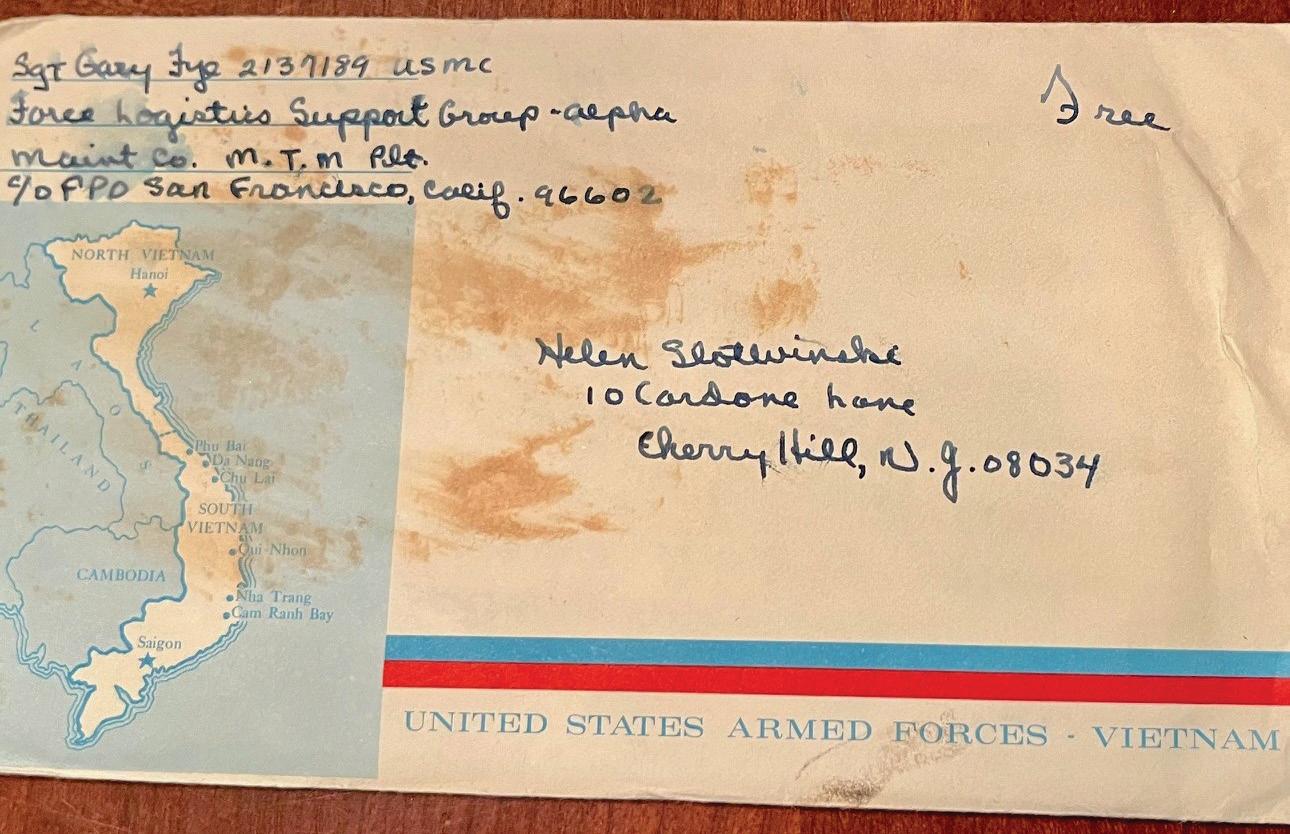 Sgt Gary Fye 2137189 USMC
Force Logistics Support Group - alpha
Maint Co. M.T.M Plt.
c/o FPO San Francisco, Calif. 96602
Free
Helen Slotwinski
10 Cardone Lane
Cherry Hill, N.J. 08034
NORTH VIETNAM
Hanoi
LAOS
THAILAND
Phu Bai
Da Nang
Chu Lai
SOUTH
VIETNAM
Qui-Nhon
CAMBODIA
Nha Trang
Cam Ranh Bay
Saigon
UNITED STATES ARMED FORCES - VIETNAM